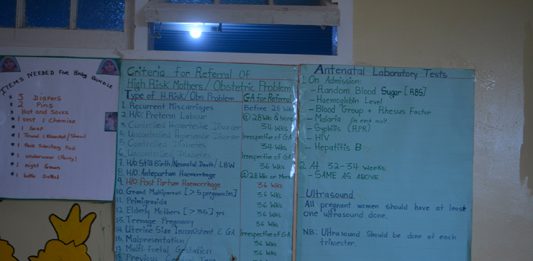 ITEMS NEEDED FOR Baby Bundle
3 Diapers
2 Pins
Hat and Socks
1 vest 1 Chemise
1 Towel
1 Pack Sanitary Pad
1 underwear (Panty)
1 Night Gown
1 Bottle Dettol
Criteria for Referral Of
High Risk Mothers / Obstetric Problem
Type of H.Risk/Obs Problem GA for Referral
1. Recurrent Miscarriages Before 28 Wks
2. H/O Preterm Labour @ 28 Wks
3. Controlled Hypertensive Disorder 34 Wks
4. Uncontrolled Hypertensive Disorder Irrespective of GA
5. Controlled Diabetes 34 Wks
6. Uncontrolled Diabetes Irrespective of GA
7. H/O Still Birth/Neonatal Death/LBW
8. H/O Antepartum Haemorrhage @ 28 Wks
9. H/O Post Partum Haemorrhage 36 Wks
10. Grand Multiparous [>5 pregnancies] 36 Wks
11. Primigravida 36 Wks
12. Elderly Mothers [>35] yrs 36 Wks
13. Teenage Pregnancy 36 Wks
14. Uterine Size Inconsistent c GA Irrespective of GA
15. Malpresentation 36 Wks
Multi-foetal Gestation 36 Wks
Previous
Antenatal Laboratory Tests
1. On Admission:
- Random Blood Sugar (RBS)
- Haemoglobin Level
- Blood Group + Rhesus Factor
- Malaria
- Syphilis (RPR)
- HIV
- Hepatitis B
2. At 32-34 weeks:
- SAME AS ABOVE
Ultrasound
All pregnant women should have at least
one ultrasound done.
NB: Ultrasound Should be done at each
trimester.